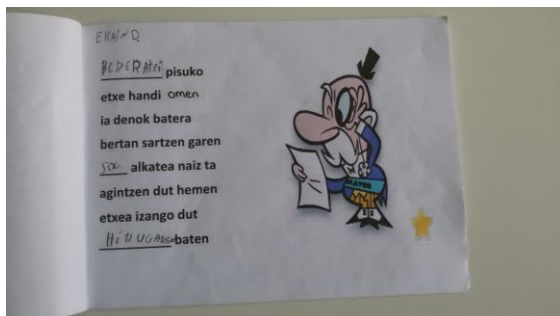 EKAIN Q
BEDERATZI pisuko
etxe handi omen
ia denok batera
bertan sartzen garen
alkatea naiz ta
agintzen dut hemen
etxea izango dut
baten
MAYOR